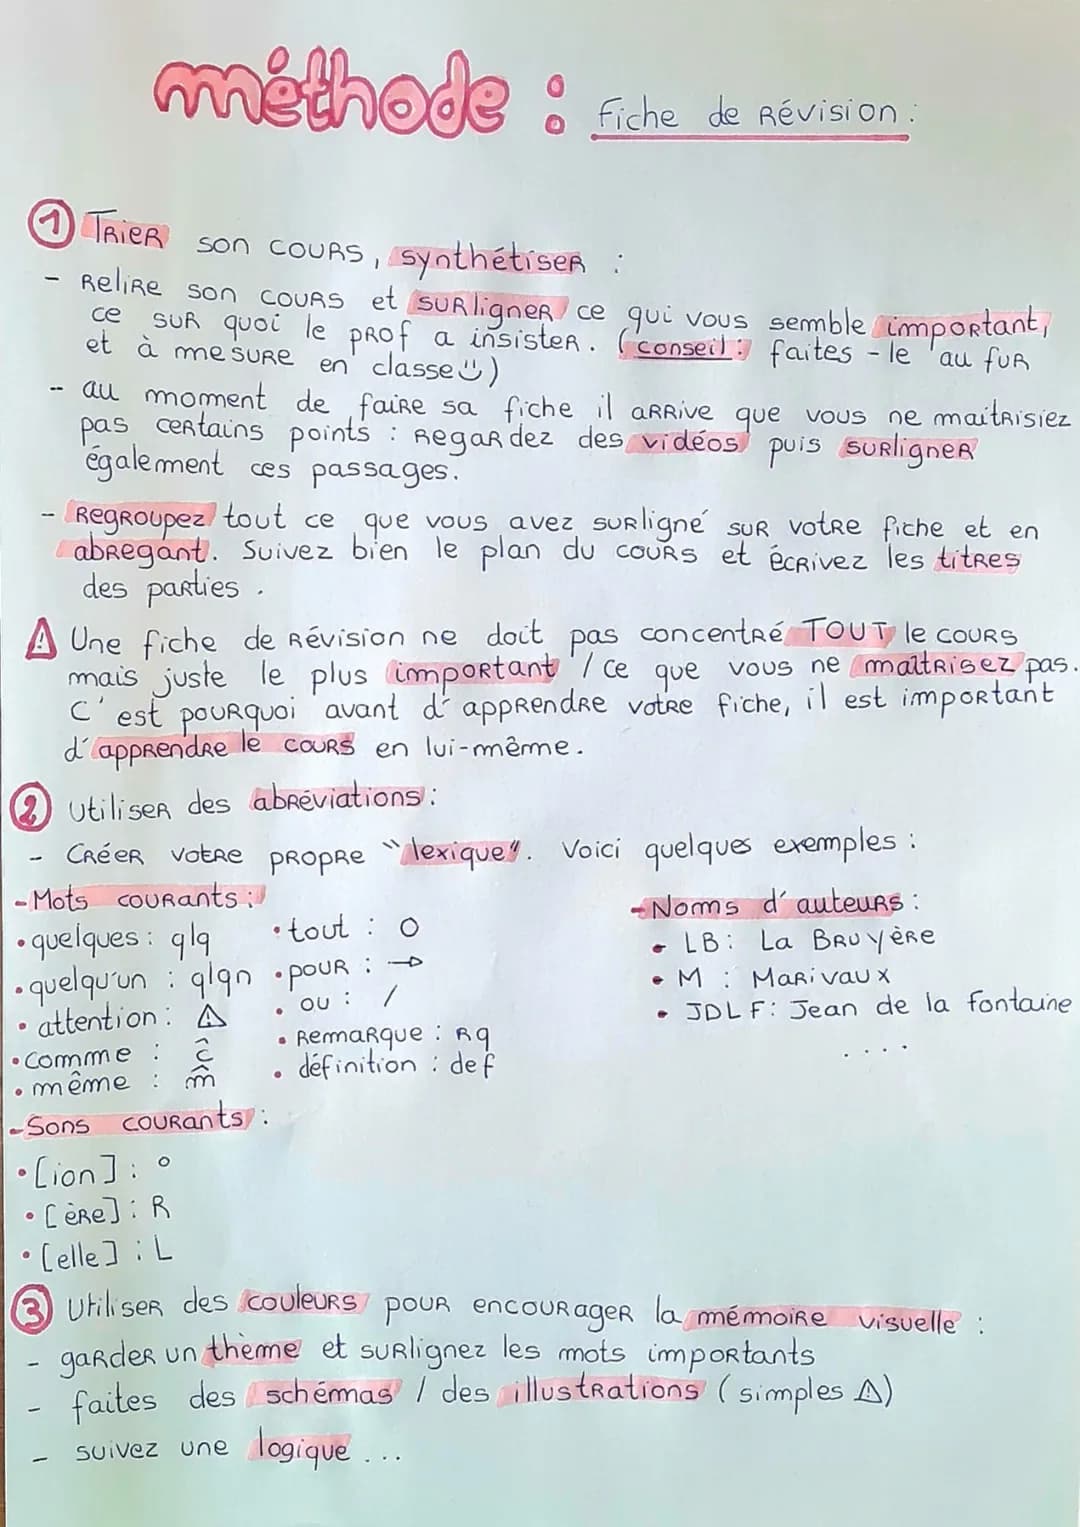 méthode : fiche de Révision :
① Trier son cours, synthétiser :
- Relire son cours et surligner ce qui vous semble important,
ce sur quoi le prof a insister. (conseil : faites-le au fur
et à mesure en classe ü)
- au moment de faire sa fiche il arrive que vous ne maitrisiez
pas certains points : Regardez des vidéos puis surligner
également ces passages.
- Regroupez tout ce que vous avez surligné sur votre fiche et en
abregant. Suivez bien le plan du cours et écrivez les titres
des parties.
⚠ Une fiche de révision ne doit pas concentré TOUT le cours
mais juste le plus important / ce que vous ne maîtrisez pas.
C'est pourquoi avant d'apprendre votre fiche, il est important
d'apprendre le cours en lui-même.
② Utiliser des abréviations :
- Créer votre propre "lexique". Voici quelques exemples :
- Mots courants :
• quelques : qlq
• quelqu'un : qlqn
• attention : ⚠
• comme : ĉ
• même : m̂
• tout : O
• pour : →
• ou : /
• Remarque : Rq
• définition : def
- Noms d'auteurs :
• LB : La Bruyère
• M : Marivaux
• JDLF : Jean de la fontaine
....
- Sons courants :
• [ion] : °
• [ère] : R
• [elle] : L
③ Utiliser des couleurs pour encourager la mémoire visuelle :
- garder un thème et surlignez les mots importants
- faites des schémas / des illustrations (simples ⚠)
- suivez une logique ...